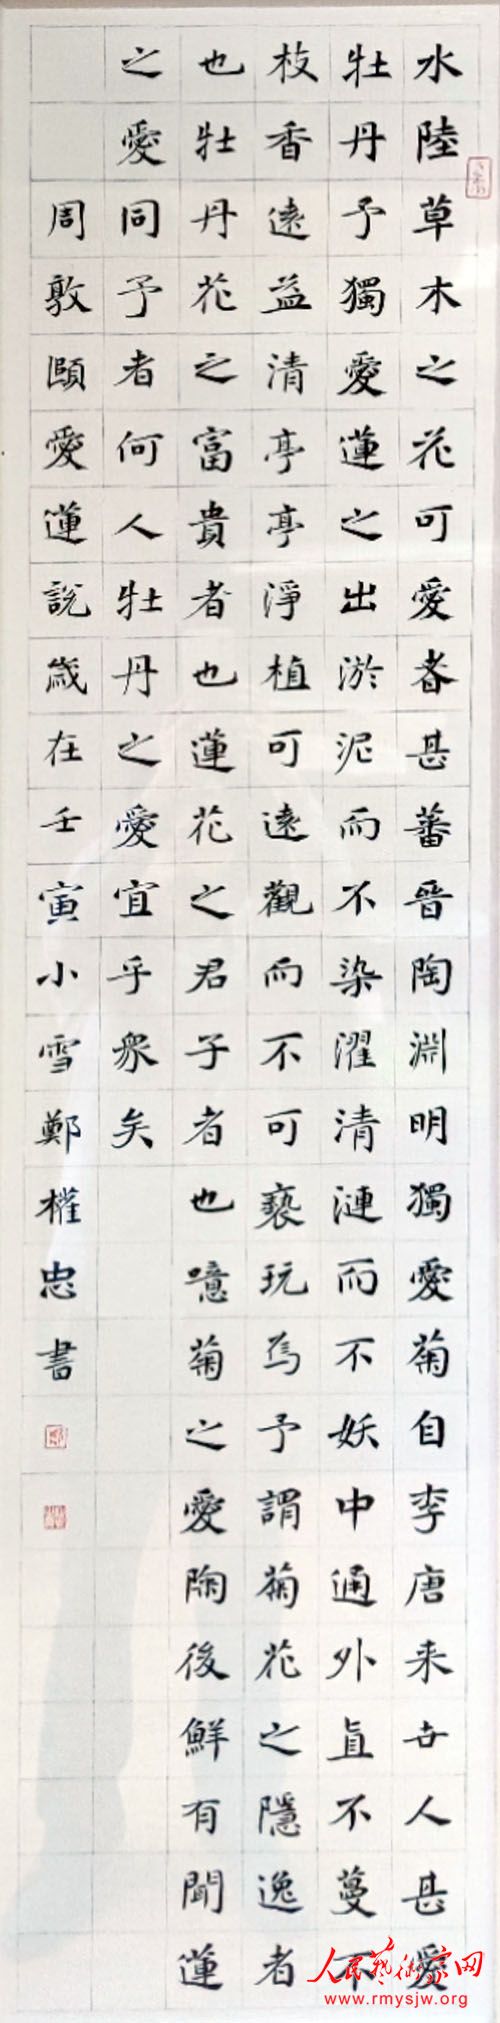 水陸草木之花可愛者甚蕃晉陶淵明獨愛菊自李唐来世人甚愛
牡丹予獨愛蓮之出淤泥而不染濯清漣而不妖中通外直不蔓不
枝香遠益清亭亭淨植可遠觀而不可褻玩焉予謂菊花之隱逸者
也牡丹花之富貴者也蓮花之君子者也噫菊之愛陶後鮮有聞蓮
之愛同予者何人牡丹之愛宜乎眾矣
周敦頤愛蓮說歲在壬寅小雪鄭權忠書
人民艺术家网
www.rmysjw.org